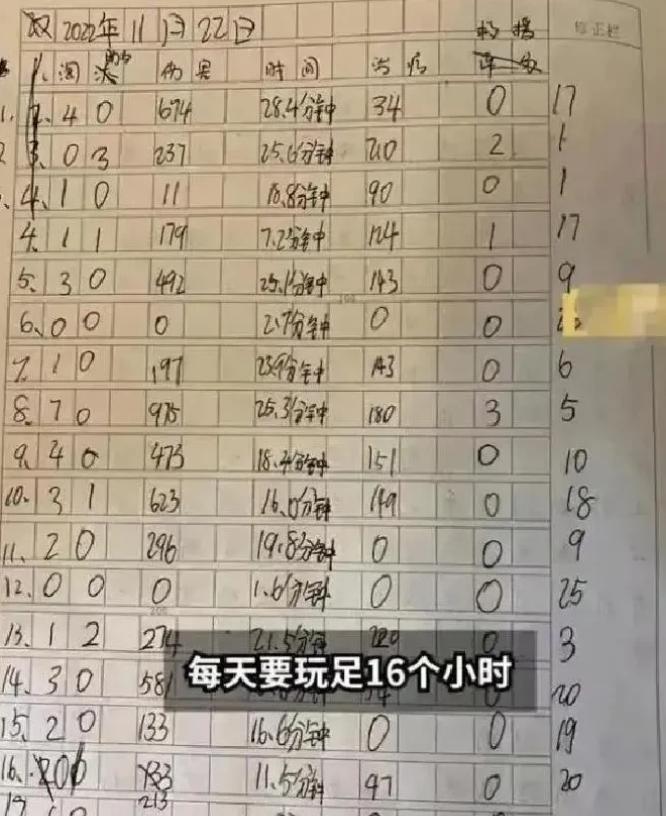 双 2022年11月22日
修正栏
淘汰 助攻 伤害 时间 治疗
1. 4 0 674 28.4分钟 34 0 17
0 3 237 25.6分钟 210 2 1
1 0 11 10.8分钟 90 0 1
4. 1 1 179 7.2分钟 124 1 17
5. 3 0 492 25.1分钟 143 0 9
6. 0 0 0 2.7分钟 0 0
7. 1 0 197 23.9分钟 143 0 6
8. 7 0 975 25.3分钟 180 3 5
9. 4 0 473 18.4分钟 151 0 10
10. 3 1 623 16.0分钟 149 0 18
11. 2 0 296 19.8分钟 0 0 9
12. 0 0 0 1.6分钟 0 0 25
13. 1 2 274 21.5分钟 220 0 3
每天要玩足16个小时
14. 3 0 581 20
15. 2 0 133 16.6分钟 0 0 19
16. 11.5分钟 97 0 20
213